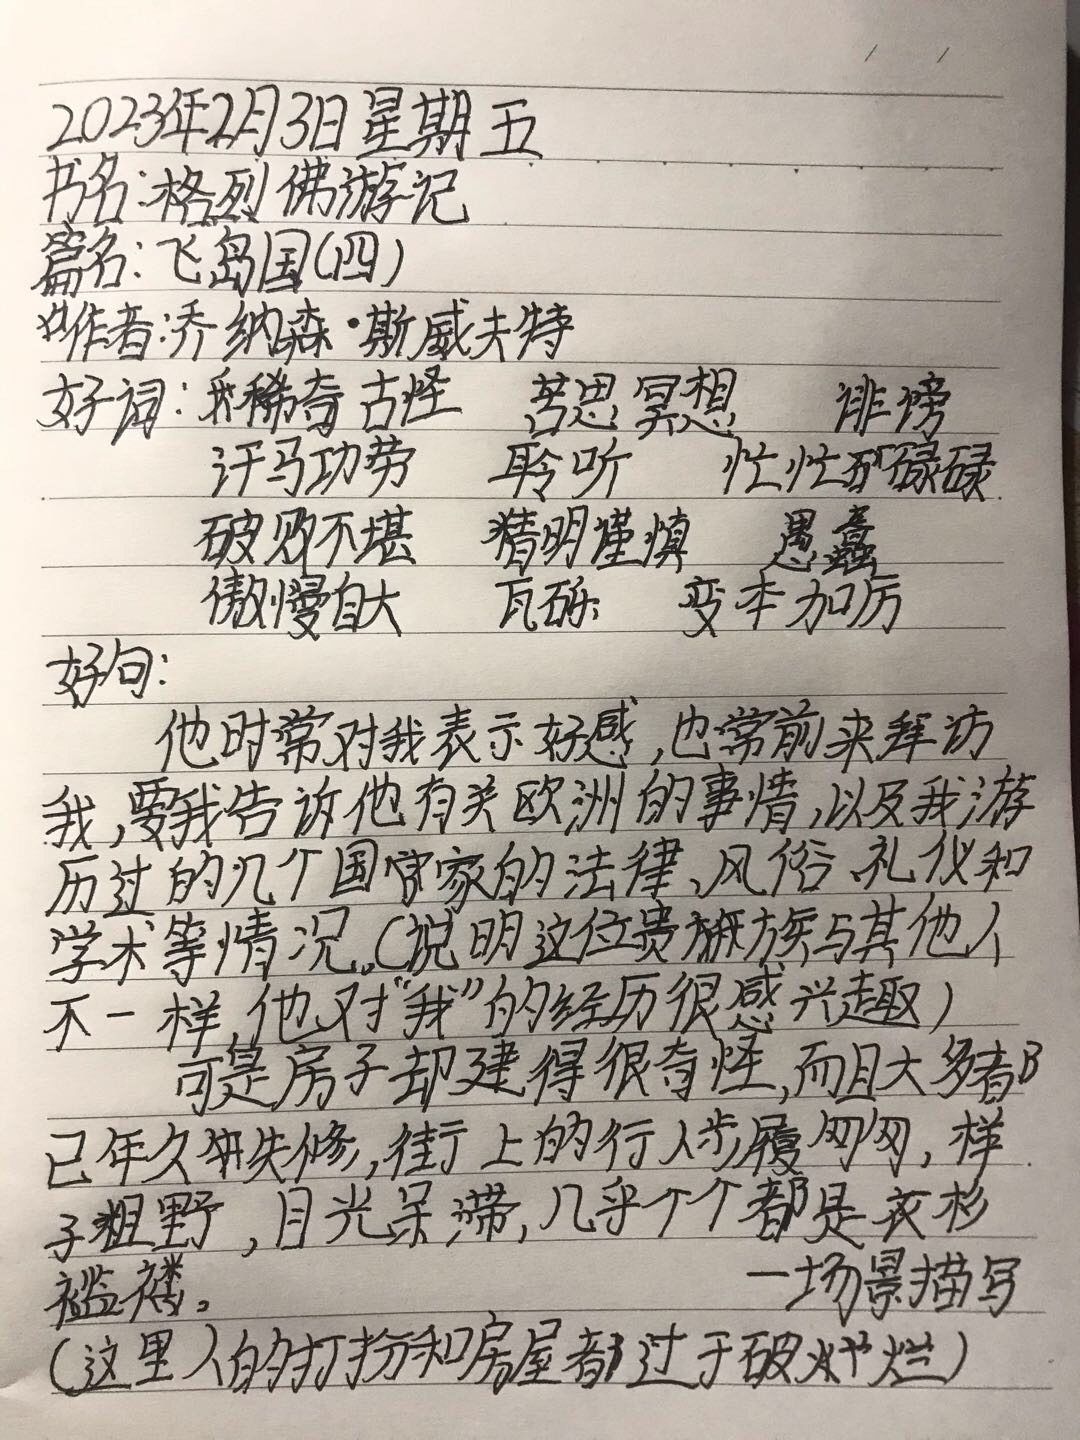 2023年2月3日星期五
书名:格列佛游记
篇名:飞岛国(四)
作者:乔纳森·斯威夫特
好词:稀奇古怪 苦思冥想 诽谤
汗马功劳 聆听 忙忙碌碌
破败不堪 精明谨慎 愚蠢
傲慢自大 瓦砾 变本加厉
好句:
他时常对我表示好感,也常前来拜访
我,要我告诉他有关欧洲的事情,以及我游
历过的几个国家的法律、风俗、礼仪和
学术等情况。(说明这位贵族与其他人
不一样,他对“我”的经历很感兴趣)
可是房子却建得很奇怪,而且大多都
已年久失修,街上的行人步履匆匆,样
子粗野,目光呆滞,几乎个个都是衣衫
褴褛。 —场景描写
(这里人的打扮和房屋都过于破烂)